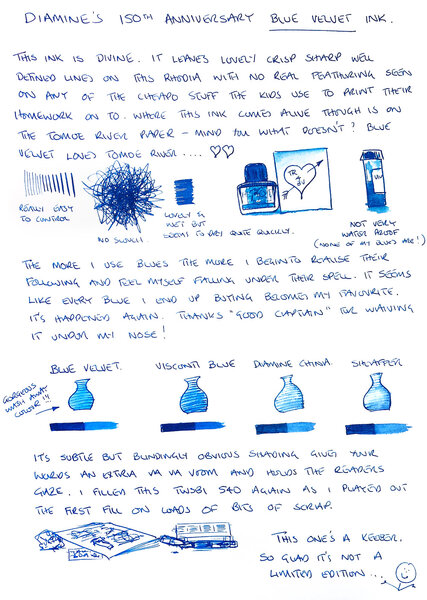 DIAMINE'S 150TH ANNIVERSARY BLUE VELVET INK.
THIS INK IS DIVINE. IT LEAVES LOVELY CRISP SHARP WELL
DEFINED LINES ON THIS RHODIA WITH NO REAL FEATHERING SEEN
ON ANY OF THE CHEAPO STUFF THE KIDS USE TO PRINT THEIR
HOMEWORK ON TO. WHERE THIS INK COMES ALIVE THOUGH IS ON
THE TOMOE RIVER PAPER - MIND YOU WHAT DOESN'T? BLUE
VELVET LOVES TOMOE RIVER....
REALLY EASY
TO CONTROL
NO SKIPPING
LOVELY &
WET BUT
SEEMS TO DRY QUITE QUICKLY.
TR
&
BV
NOT VERY
WATER PROOF
(NONE OF MY BLUES ARE!)
THE MORE I USE BLUES THE MORE I BEGIN TO REALISE THEIR
FOLLOWING AND FEEL MYSELF FALLING UNDER THEIR SPELL. IT SEEMS
LIKE EVERY BLUE I END UP BUYING BECOMES MY FAVOURITE.
IT'S HAPPENED AGAIN. THANKS "GOOD CAPTAIN" FOR WAIVING
IT UNDER MY NOSE!
BLUE VELVET. VISCONTI BLUE DIAMINE CHINA. SHEAFFER
GORGEOUS
WASH AWAY
COLOUR!!!
IT'S SUBTLE BUT BLINDINGLY OBVIOUS SHADING GIVES YOUR
WORDS AN EXTRA VA VA VOOM AND HOLDS THE READERS
GAZE. I FILLED THIS TWSBI 540 AGAIN AS I PLAYED OUT
THE FIRST FILL ON LOADS OF BITS OF SCRAP.
THIS ONE'S A KEEPER.
SO GLAD IT'S NOT A
LIMITED EDITION...